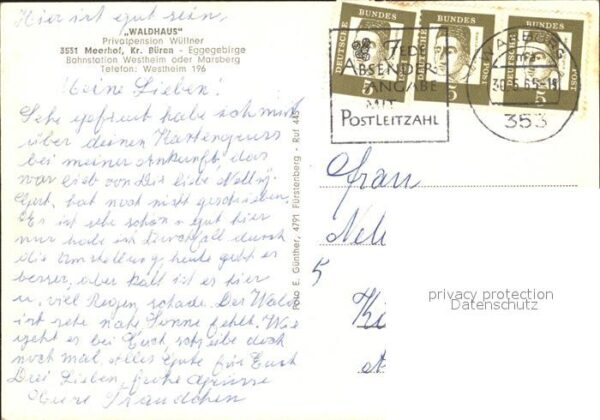 Hier ist gut sein,
„WALDHAUS"
Privatpension Wüllner
3531 Meerhof, Kr. Büren - Eggegebirge
Bahnstation Westheim oder Marsberg
Telefon: Westheim 196
Meine Lieben!
Sehr erfreut habe ich mich
über deinen Kartengruss
bei meiner Ankunft, das
war lieb von Dir liebe Nelly.
hat noch nicht geschrieben.
Es ist sehr schön u gut hier
nur habe ich Durchfall durch
die Umstellung, heute geht es
besser, aber kalt ist es hier
u. viel Regen, schade. Der Wald
ist sehr nahe, Sonne fehlt. Wie
geht es bei Euch, schreibe doch
noch mal. Alles Gute für Euch
Drei Lieben, frohe Grüsse
Eure Traudchen
Foto E. Günther, 4791 Fürstenberg - Ruf 445
DEUTSCHE BUNDESPOST
5
DEUTSCHE BUNDESPOST
5
DEUTSCHE BUNDESPOST
5
JEDE
ABSENDER-
ANGABE
MIT
POSTLEITZAHL
353
Frau
Nel
5
Ki
privacy protection
Datenschutz